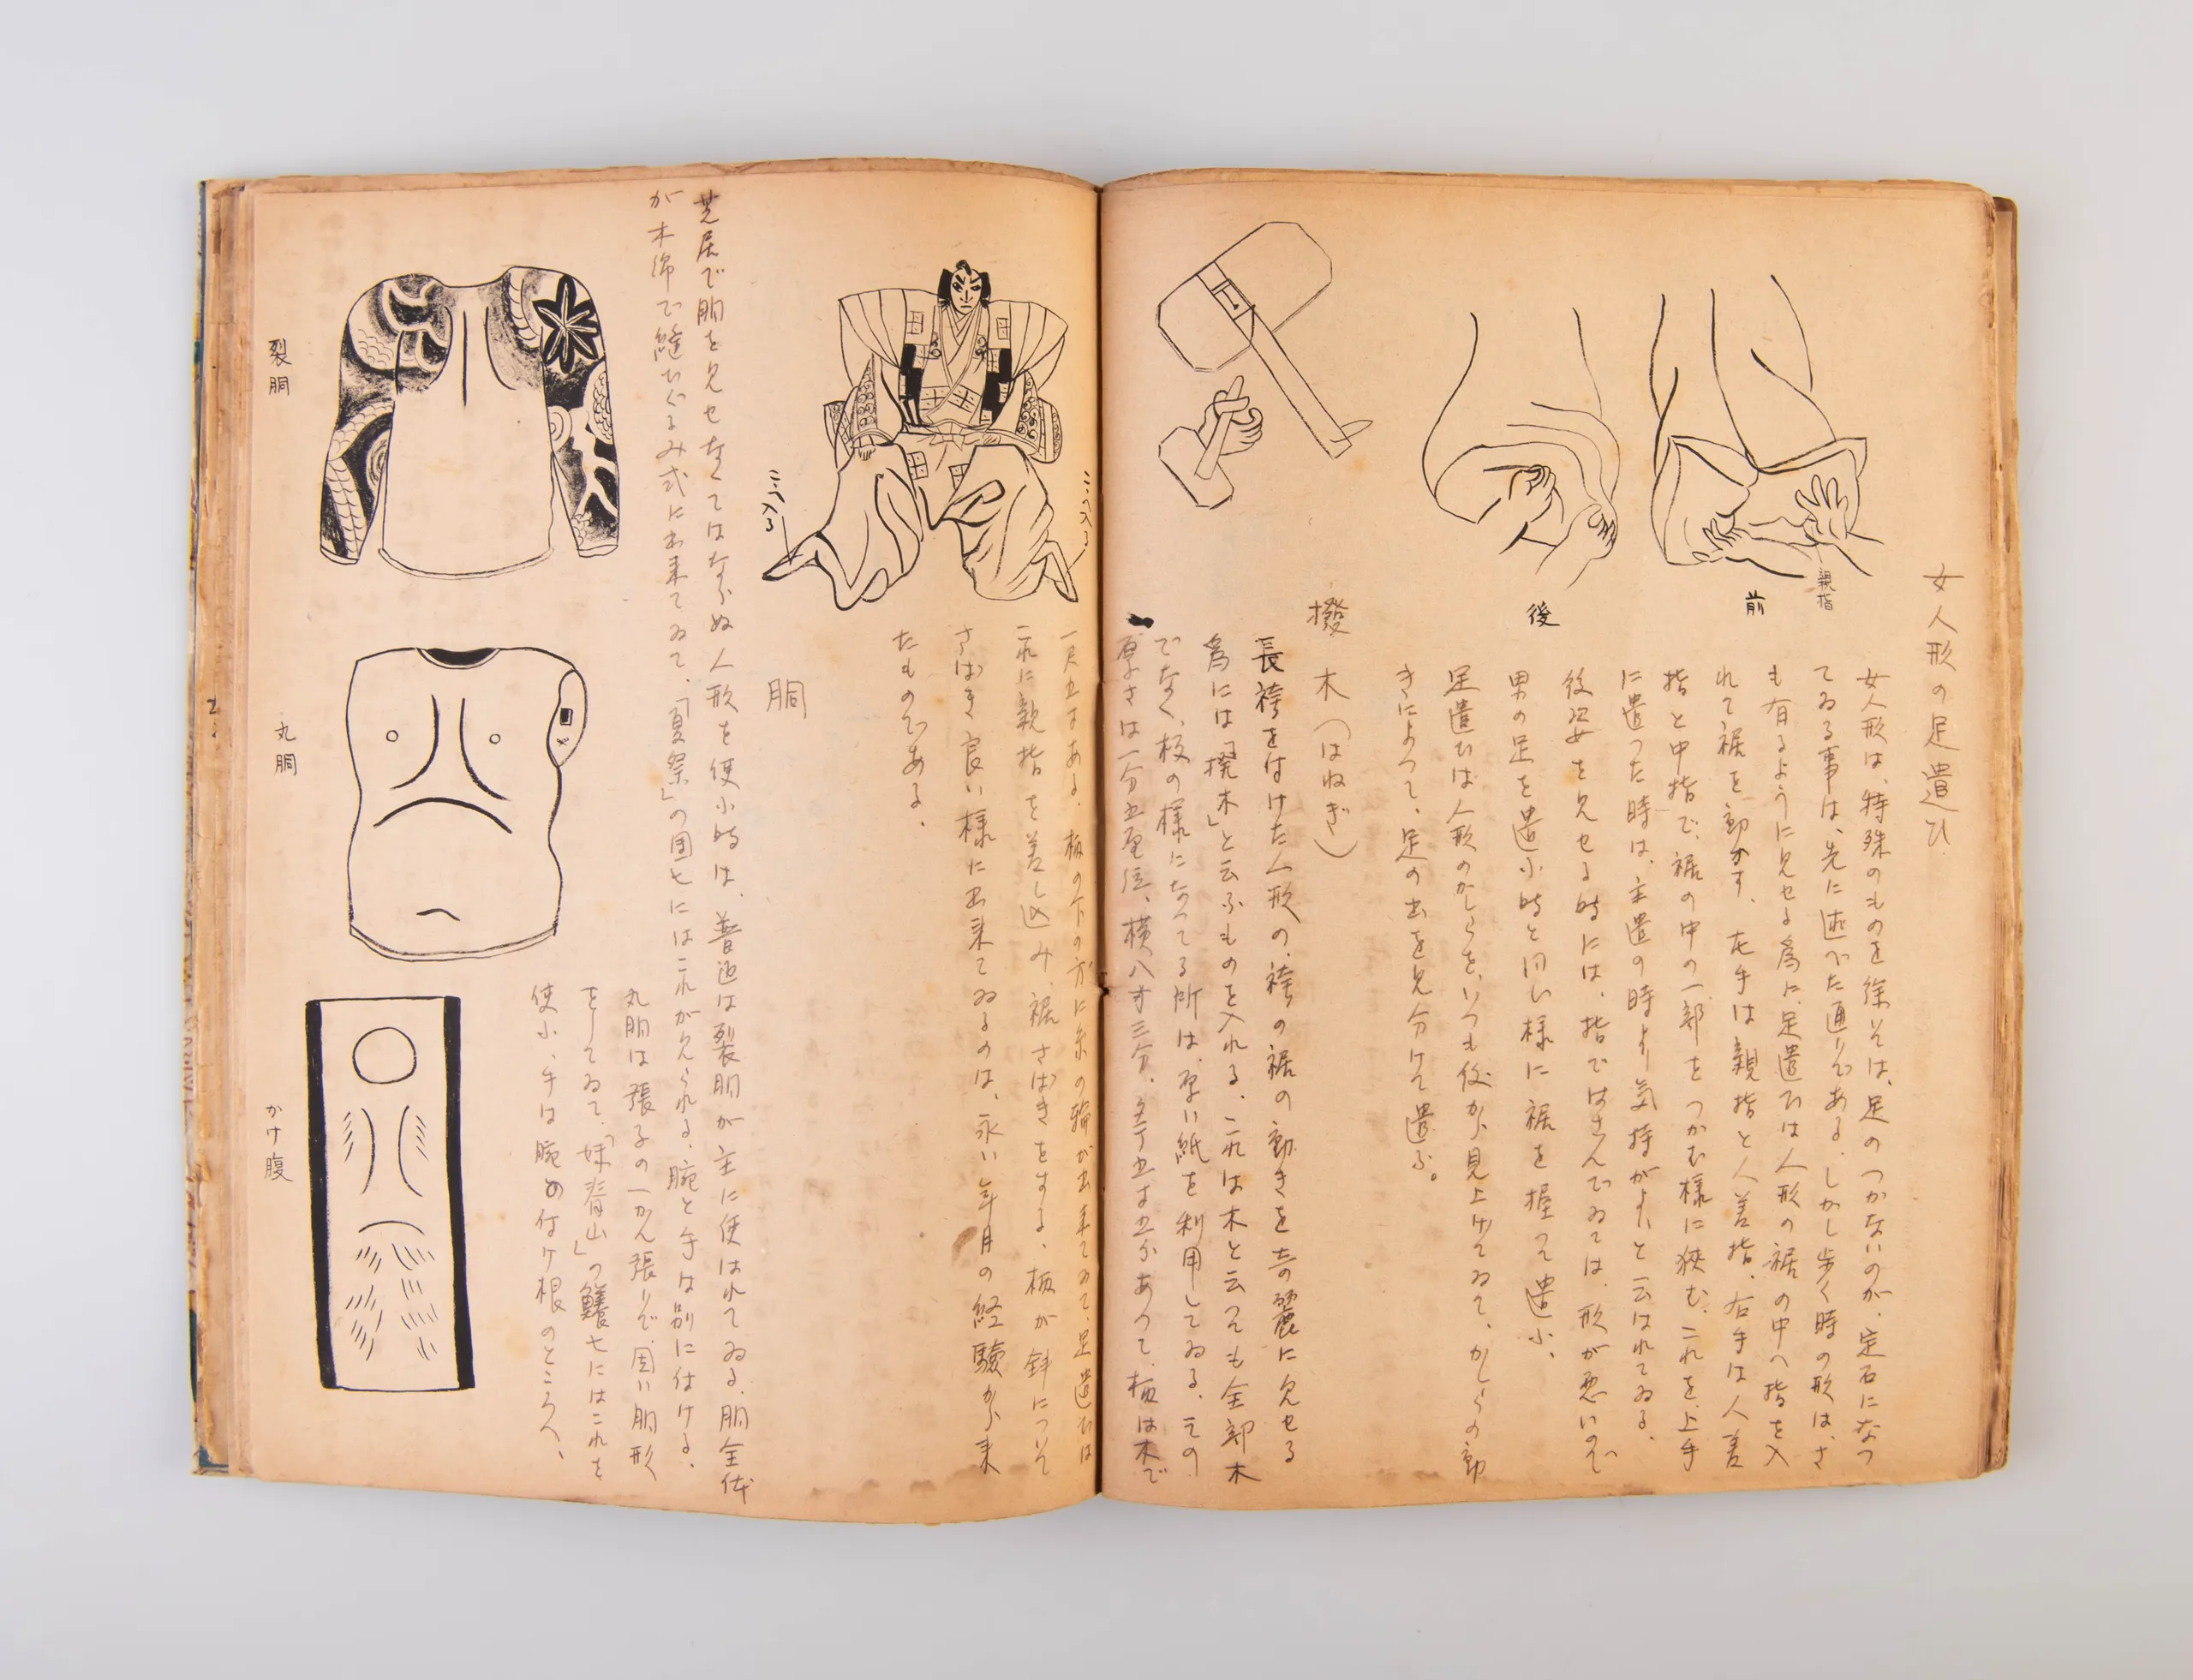 女人形の足遣ひ
女人形は、特殊のものを除そは、足のつかないのが、定石になつ
てゐる事は、先に述べた通りである。しかし歩く時の形は、さ
も有るように見せる為に、足遣ひは人形の裾の中へ指を入
れて裾を動かす、左手は親指と人差指、右手は人差
指と中指で、裾の中の一部をつかむ様に狹む、これを上手
に遣つた時は、主遣の時より気持がよいと云はれてゐる、
後姿を見せる時には、指ではさんでゐては、形が悪いので
男の足を遣ふ時と同じ様に裾を握つて遣ふ、
足遣ひは人形のかしらを、いつも後から見上げてゐて、かしらの動
きによつて、足の出を見分けて遣ふ。
前
親指
後
撥木(はねぎ)
長袴をはけた人形の、袴の裾の動きを奇麗に見せる
為には「撥木」と云ふものを入れる、これは木と云つても全部木
でなく、板の様になつてる所は、厚い紙を利用してゐる、その
厚さは一分五厘位、横八寸三分、 あつて、板は木で
一尺五寸ある、板の下の方に糸の輪が出来てゐて、足遣ひは
これに親指を差し込み、裾さばきをする、板が斜について
さばき良い様に出来てゐるのは、永い年月の経驗から来
たものである、
ここへ入る
ここへ入る
胴
芝居で胴を見せなくてはならぬ人形を使ふ時は、普通は裂胴が主に使はれてゐる、胴全体
が木綿で縫ひぐるみ式に出来てゐて、「夏祭」の団七にはこれが見られる、腕と手は別につける、
丸胴は張子の一かん張りで、固い胴形
をしてゐて、「妹脊山」の鱶七にはこれを
使ふ、手は腕の付け根のところへ、
裂胴
丸胴
かけ腹